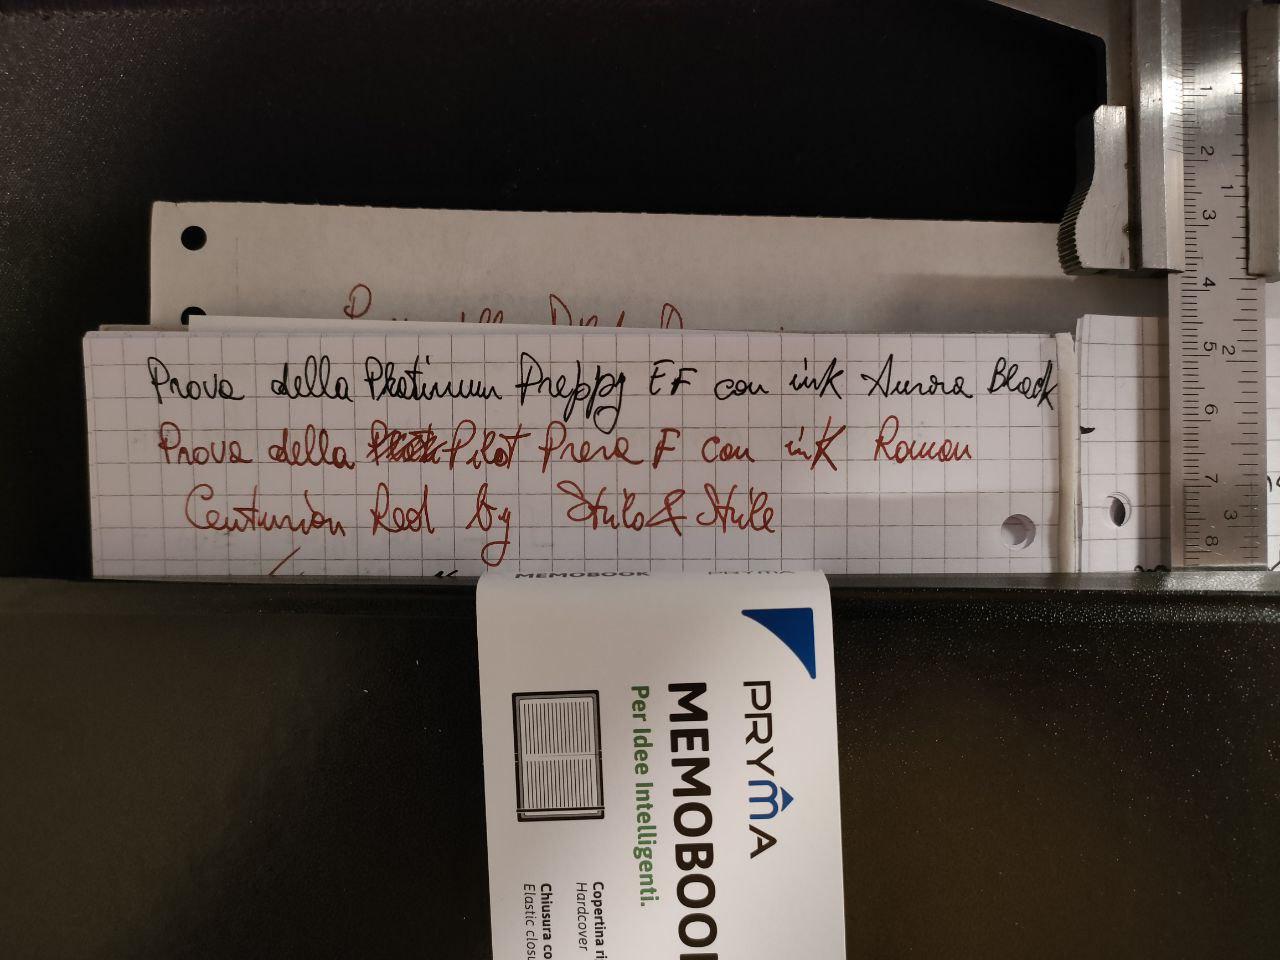 Prova della Platinum Preppy EF con ink Aurora Black
Prova della Pilot Prera F con ink Roman
Centurion Red by Stilo&Stile
MEMOBOOK PRYMA
PRYMA
MEMOBOOK
Per Idee Intelligenti.
Copertina ri
Hardcover
Chiusura co
Elastic closu
1
2
3
4
5
6
7
8
1
2
3